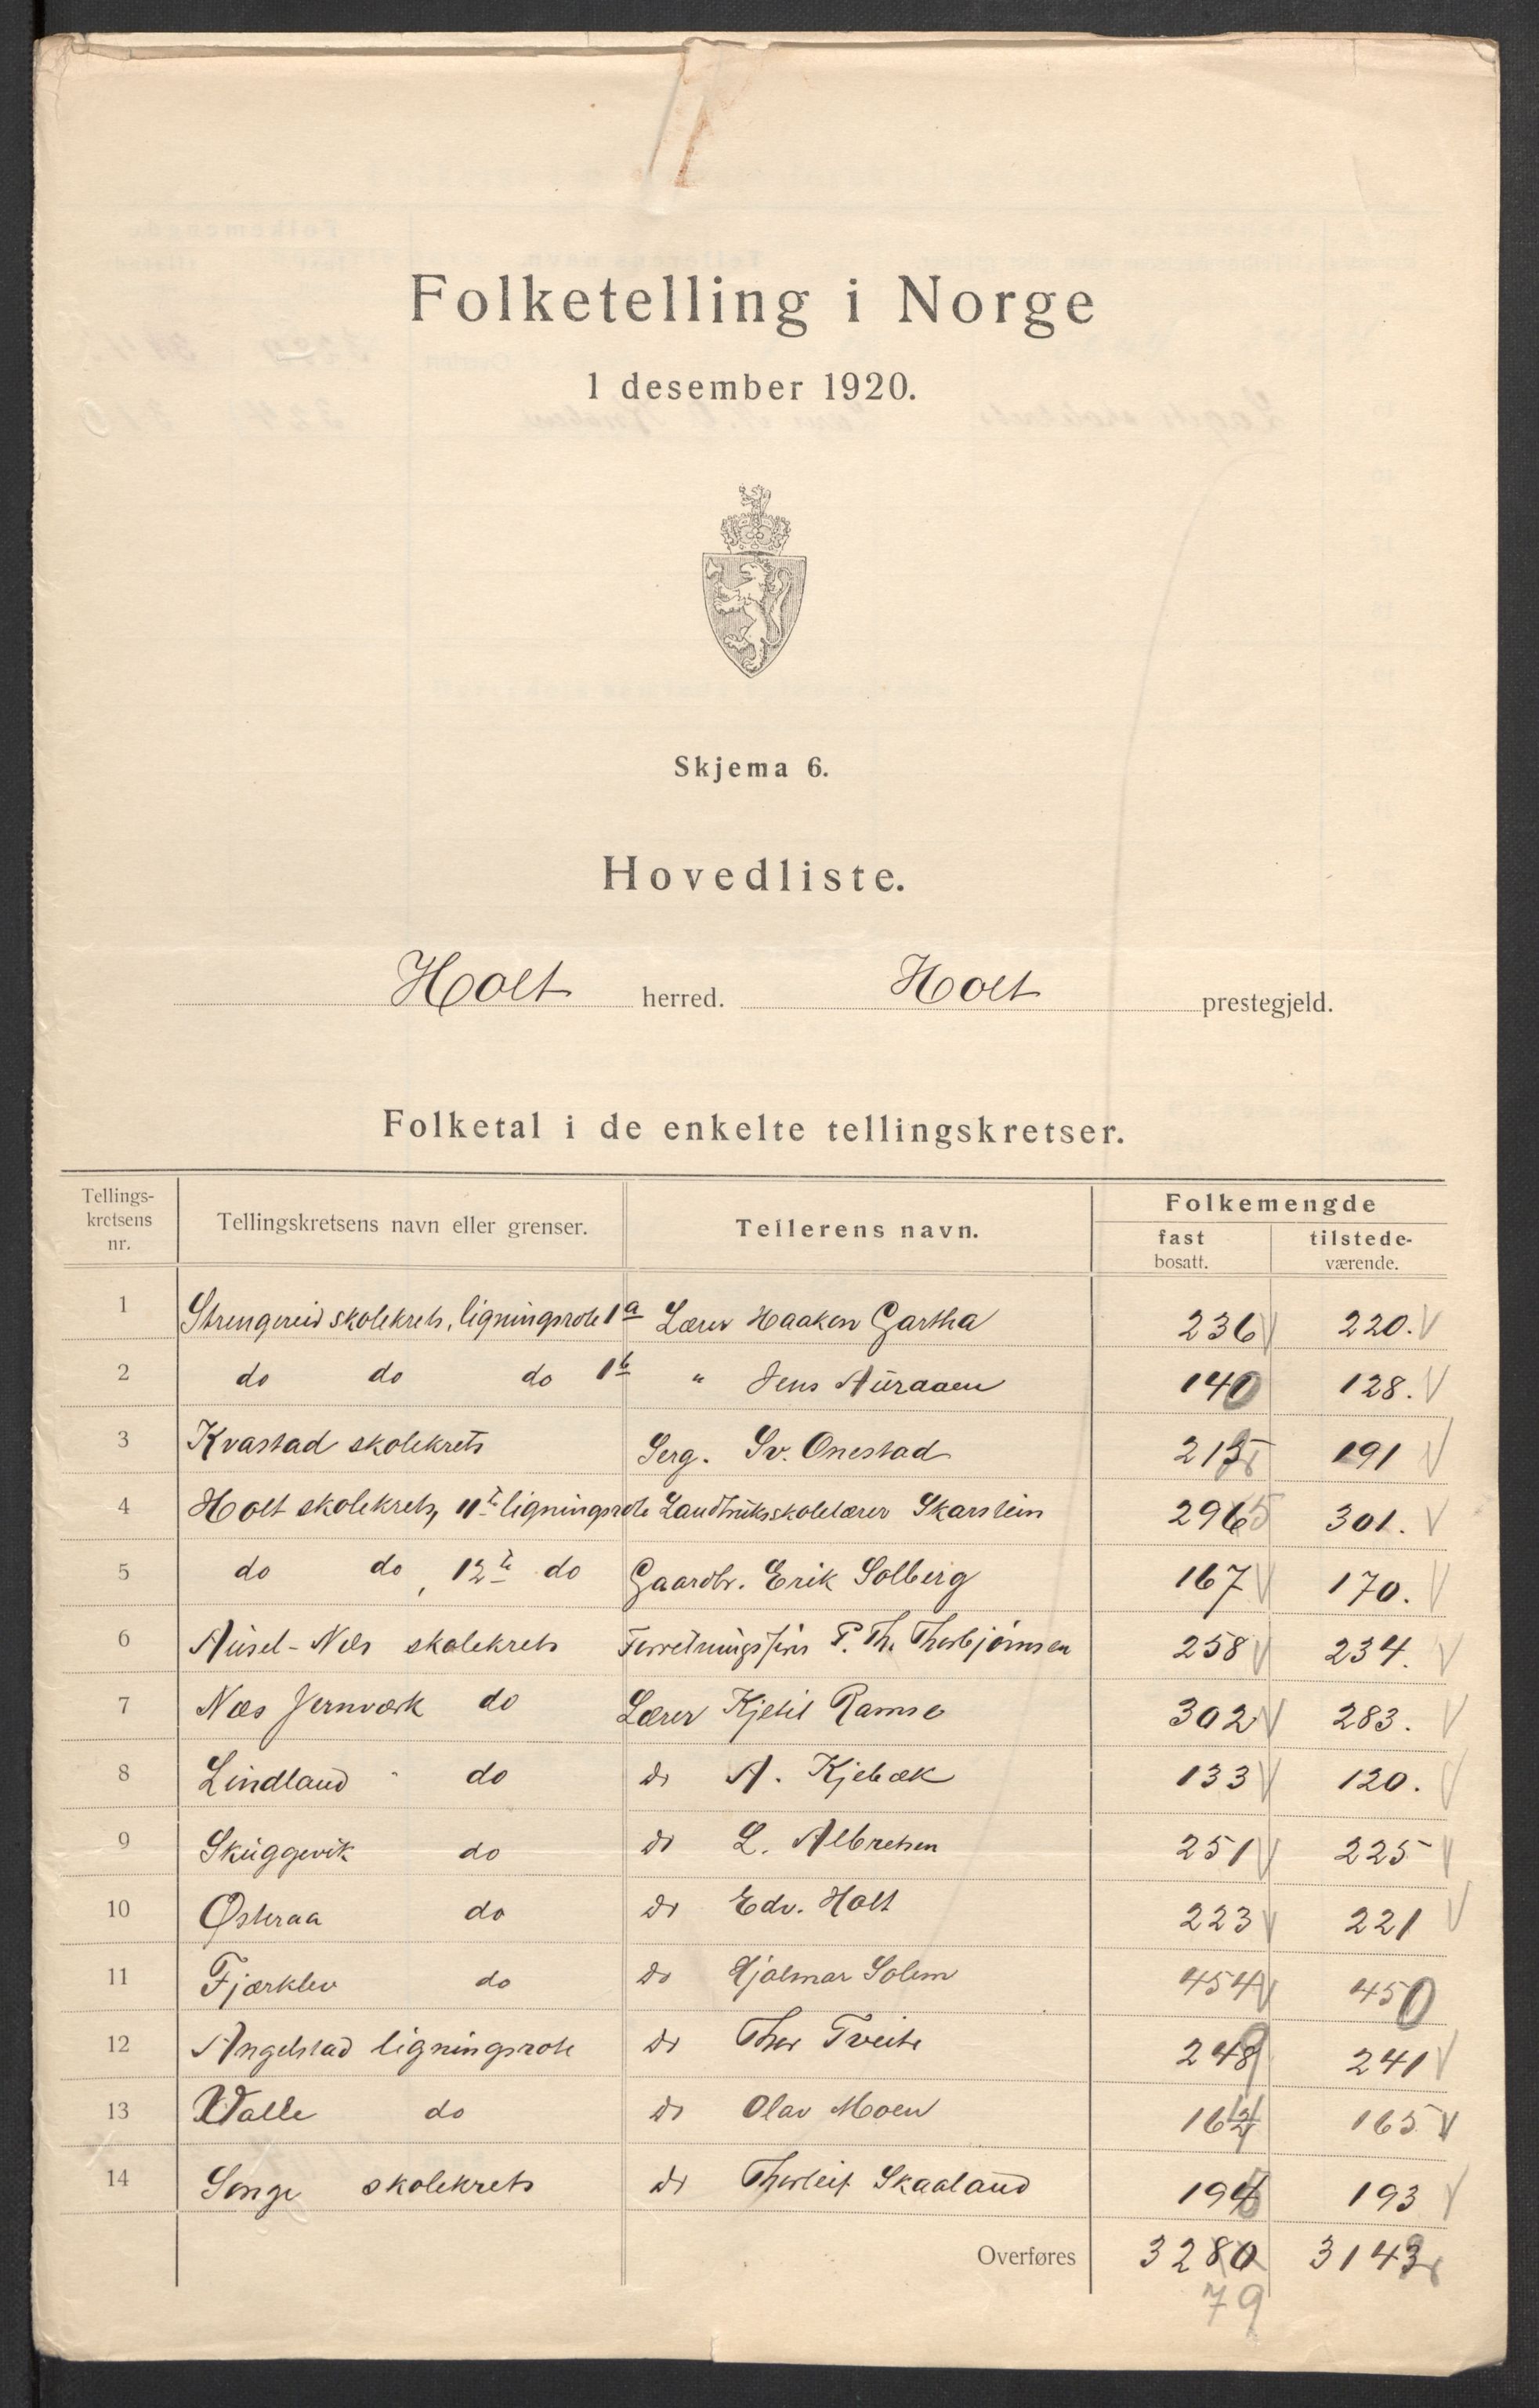 Folketelling i Norge
1 desember 1920.
Skjema 6.
Hovedliste.
Holt herred. Holt prestegjeld.
Folketal i de enkelte tellingskretser.
Tellings-kretsens nr. Tellingskretsens navn eller grenser. Tellerens navn. Folkemengde
fast bosatt. tilstede-værende.
1 Strengereid skolekrets, ligningsrote 1a Lærer Haakon Gartha 236 220.
2 do do do 1b " Jens Auraaen 140 128.
3 Kvastad skolekrets Serg. Sv. Onestad 215 191
4 Holt skolekrets, 11te ligningsrote Landbruksskolelærer Skarstein 296 5 301.
5 do do, 12te do Gaardbr. Erik Solberg 167 170.
6 Ausel-Nes skolekrets P. Th. Thorbjørnsen 258 234.
7 Næs Jernværk do Lærer Kjetil Ramse 302 283.
8 Lindland " do do A. Kjebæk 133 120.
9 Skuggevik do do L. Albretsen 251 225
10 Østeraa do do Edv. Holt 223 221
11 Fjærklev do do Hjalmar Solem 454 450
12 Angelstad ligningsrote do Thor Tveite 249 241
13 Valle do do Olav Moen 164 165
14 Songe skolekrets do Thorleif Skaaland 193
Overføres 3280 3142
79